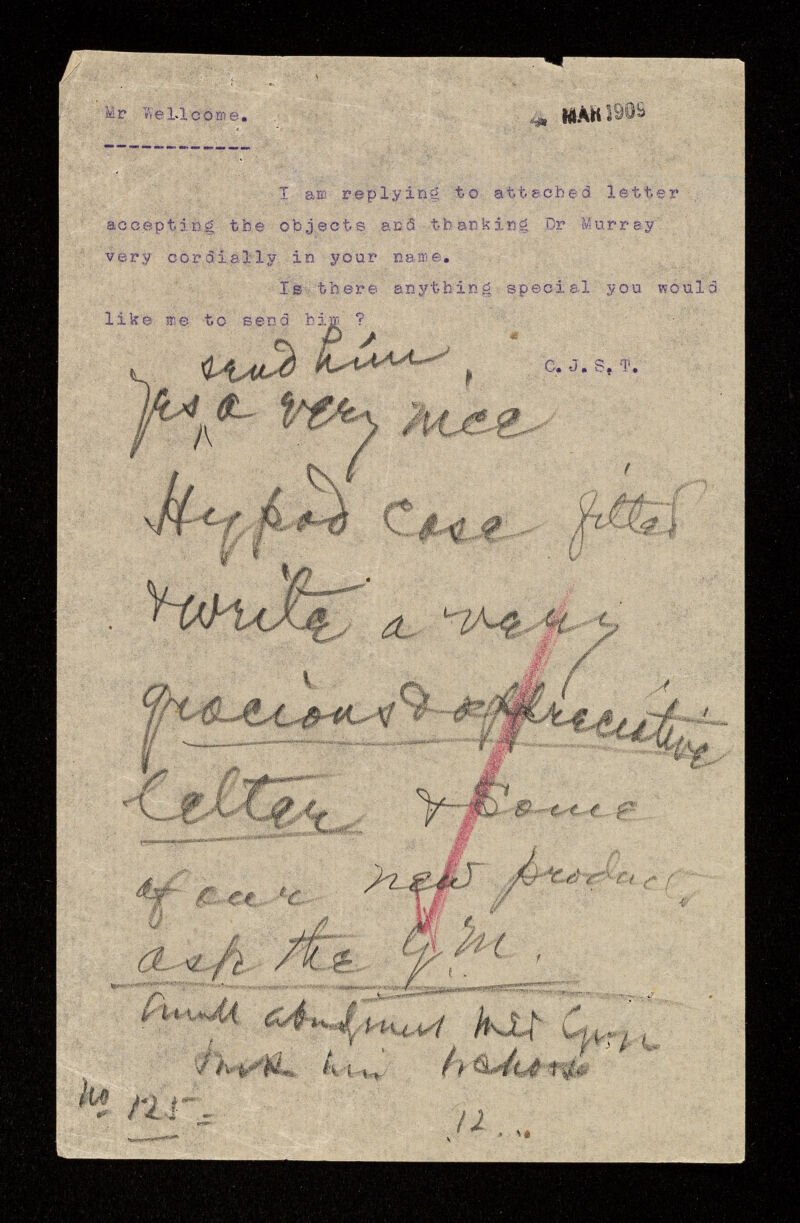 Mr Wellcome.
4 MAR 1909
I am replying to attached letter
accepting the objects and thanking Dr Murray
very cordially in your name.
Is there anything special you would
like me to send him ?
C. J. S. T.
send him
Yes ^ a very nice
Hypod Case fitted
& write a very
gracious & appreciative
letter & some
of our new products
ask the G. M.
him
No 125 =
12...